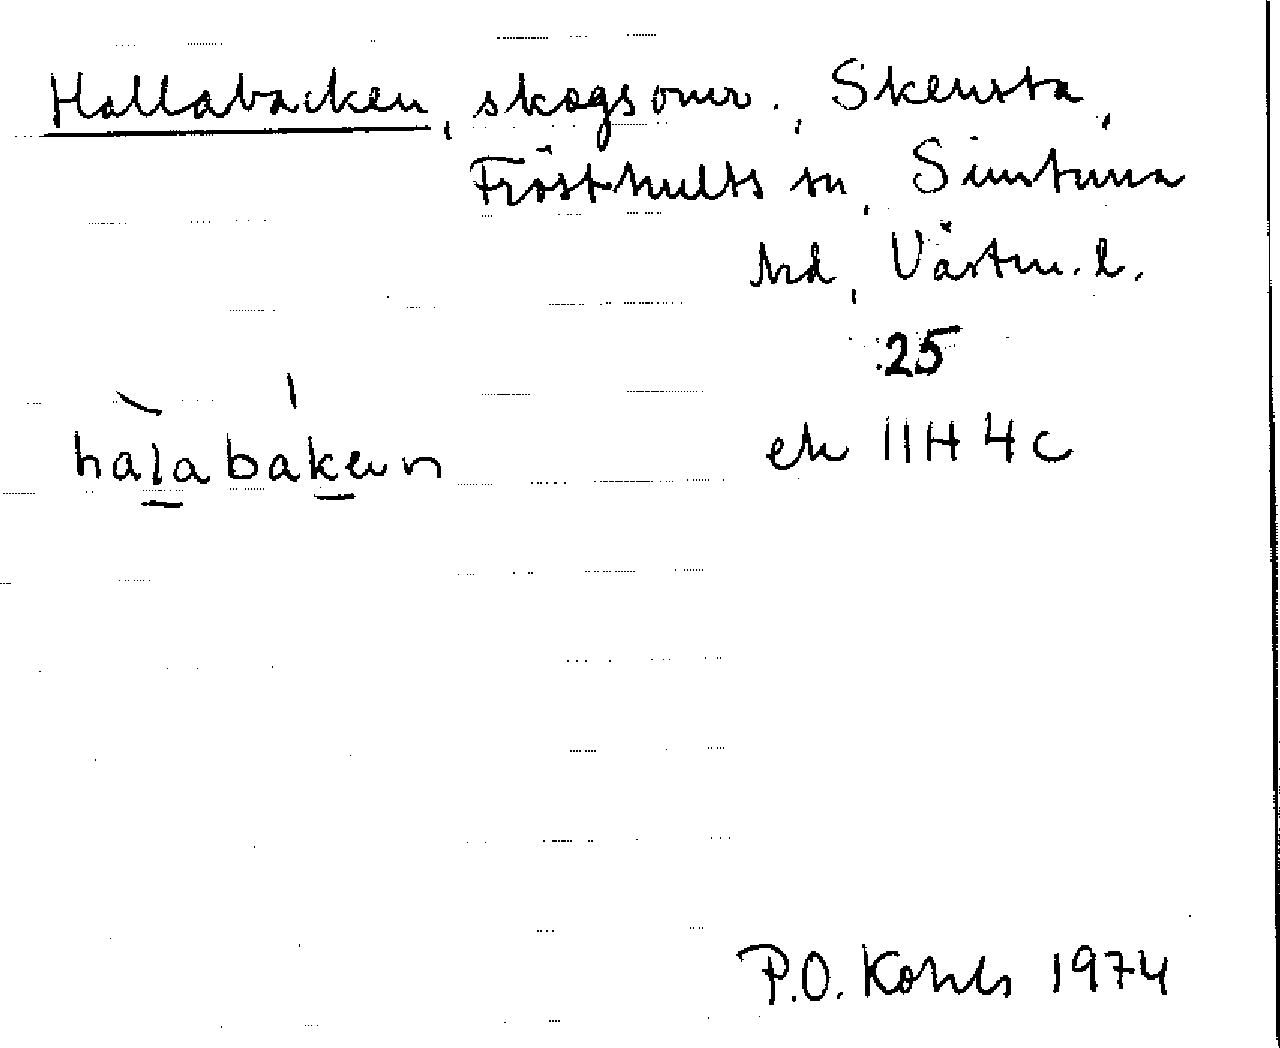 Hallabacken, skogsomr., Skensta,
Frösthults sn, Simtuna
hd, Västm. l.
25
hàlabákən
ek 11H 4c
P.O. Kohls 1974